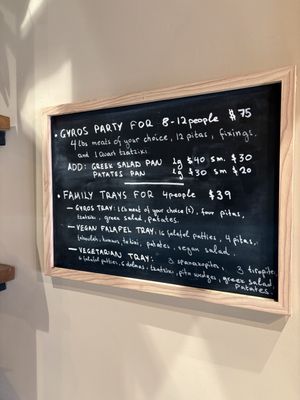 • GYROS PARTY FOR 8-12 people $75
4 lbs meats of your choice, 12 pitas, fixings,
and 1 Quart tzatziki
ADD: GREEK SALAD PAN lg $40 sm. $30
PATATES PAN lg $30 sm $20
• FAMILY TRAYS FOR 4 people $39
— GYROS TRAY: 1 lb meat of your choice(s), four pitas,
tzatziki, greek salad, patates.
— VEGAN FALAFEL TRAY: 16 falafel patties, 4 pitas,
tabouleh, humus, tahini, patates, vegan salad
— VEGETARIAN TRAY: 3 spanakopites, 3 tiropites
6 falafel patties, 6 dolmas, tzatziki, pita wedges, greek salad
patates.